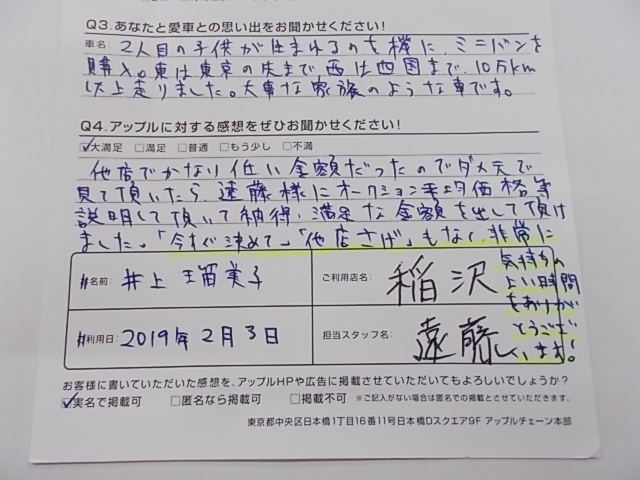 Q3.あなたと愛車との思い出をお聞かせください!
車名: 2人目の子供が生まれるのを機に、ミニバンを
購入。東は東京の先まで西は四国まで、10万km
以上走りました。大事な家族のような車です。
Q4.アップルに対する感想をぜひお聞かせください!
☑大満足 □満足 □普通 □もう少し □不満
他店でかなり低い金額だったのでダメ元で
見て頂いたら、遠藤様にオークション平均価格等
説明して頂いて納得、満足な金額を出して頂け
ました。「今すぐ決めて」「他店さげ」もなく、非常に
気持ちの
よい時間
をありが
とうござ
いました!
お名前: 井上 瑠美子
ご利用店名: 稲沢
ご利用日: 2019年2月3日
担当スタッフ名: 遠藤
お客様に書いていただいた感想を、アップルHPや広告に掲載させていただいてもよろしいでしょうか?
☑実名で掲載可 □匿名なら掲載可 □掲載不可 ※ご記入がない場合は匿名での掲載とさせていただきます。
東京都中央区日本橋1丁目16番11号日本橋Dスクエア9F アップルチェーン本部